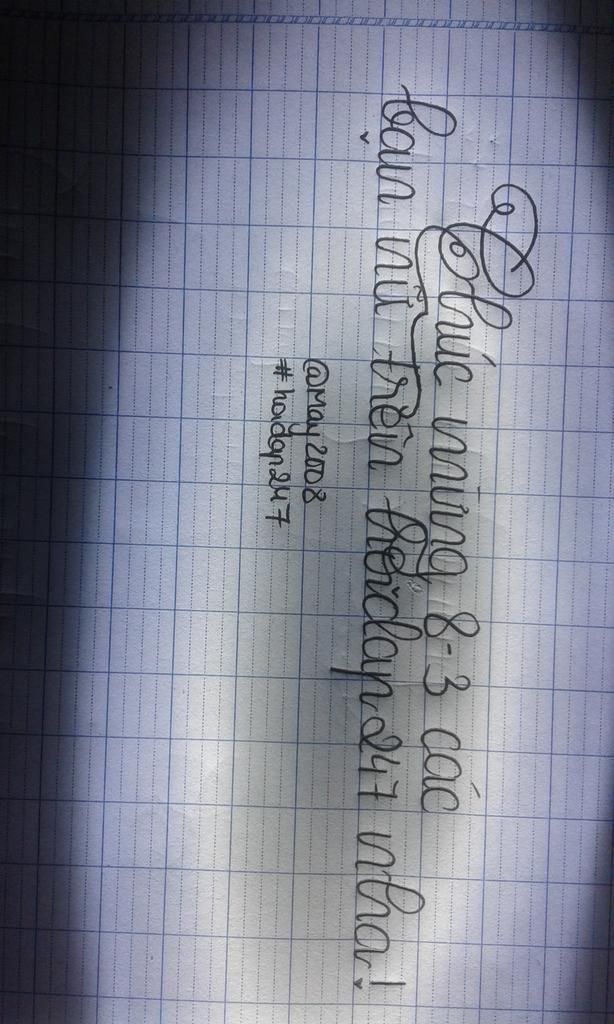 Chúc mừng 8-3 các
bạn nữ trên hoidap247 nha!
@May2008
#hoidap247